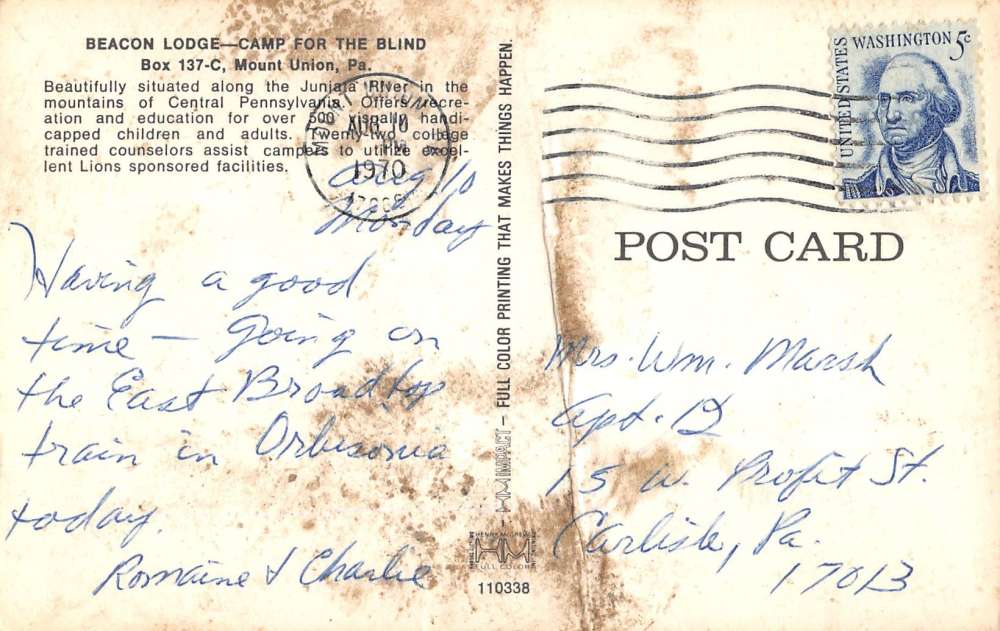 BEACON LODGE—CAMP FOR THE BLIND
Box 137-C, Mount Union, Pa.
Beautifully situated along the Juniata River in the
mountains of Central Pennsylvania. Offers recre-
ation and education for over 500 visually handi-
capped children and adults. Twenty-two college
trained counselors assist campers to utilize excel-
lent Lions sponsored facilities.
AUG 10
1970
Aug 10
Monday
Having a good
time — Going on
the East Broadtop
train in Orbisonia
today.
Romaine & Charlie
HM IMPACT — FULL COLOR PRINTING THAT MAKES THINGS HAPPEN.
HM
FULL COLOR
110338
UNITED STATES
WASHINGTON 5c
POST CARD
Mrs. Wm. Marsh
Apt. D
15 W. Profit St.
Carlisle, Pa.
17013